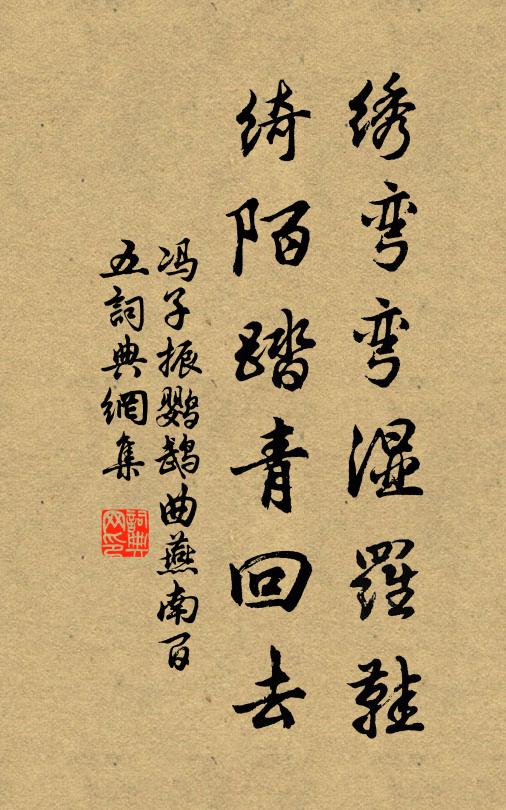 绣弯弯湿羅鞋
绮陌踏青回去
冯子振鹦鹉曲燕南百
五詞典網集
詞典
网印